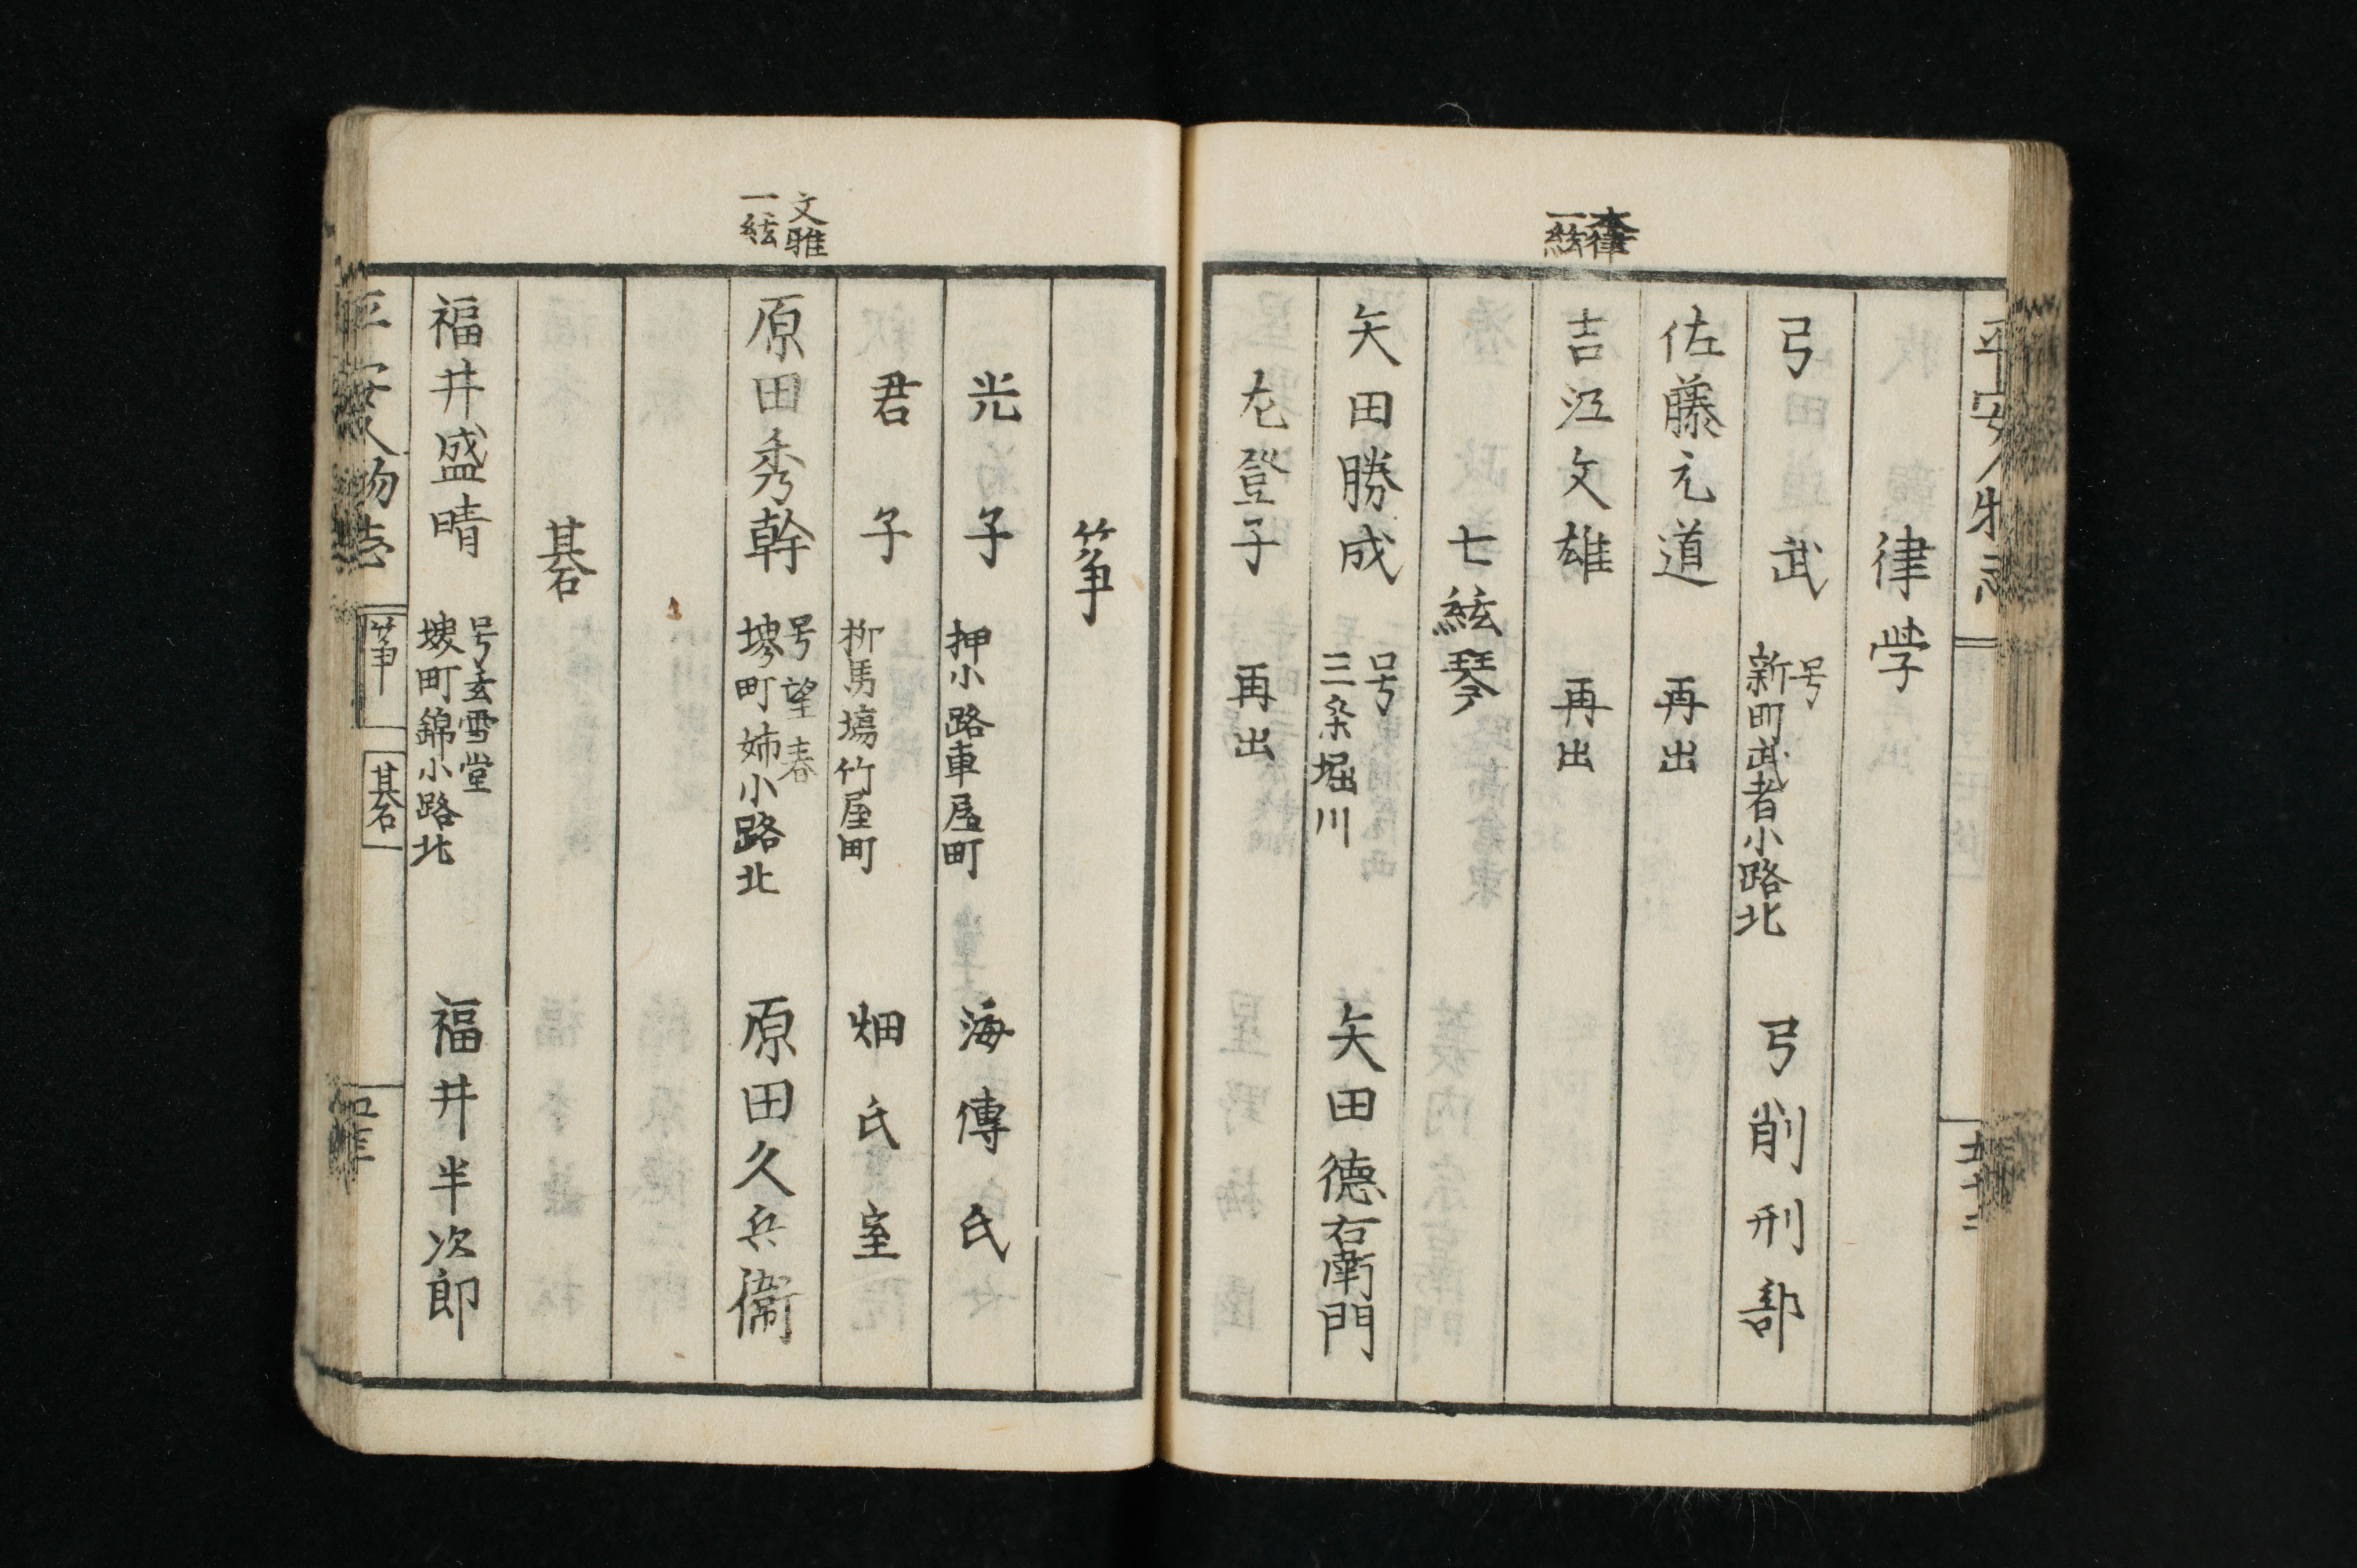 律学
弓武 号 新町武者小路北 弓削刑部
佐藤元道 再出
本律 一絃
吉江文雄 再出
七絃琴
矢田勝成 号 三条堀川 矢田徳右衛門
左登子 再出
箏
光子 押小路車屋町 海傳氏
君子 柳馬場竹屋町 畑氏室
文雅 一絃
原田秀幹 号望春 堺町姉小路北 原田久兵衛
碁
福井盛晴 号玄雪堂 堺町錦小路北 福井半次郎
平安人物志 箏 碁